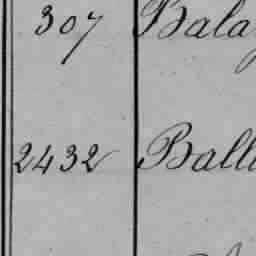 307 Bala
2432 Ball